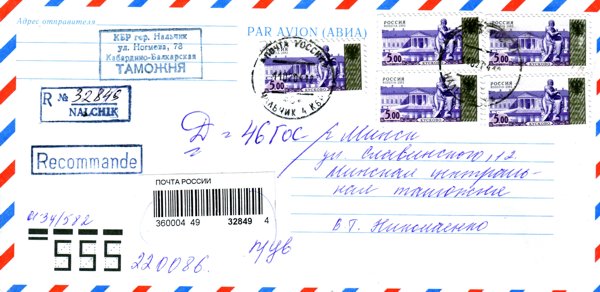 Адрес отправителя
PAR AVION (АВИА)
КБР гор. Нальчик
ул. Ногмова, 78
Кабардино-Балкарская
ТАМОЖНЯ
РОССИЯ
5.00
КУСКОВО
РОССИЯ
5.00
КУСКОВО
5.00
РОССИЯ
5.00
КУСКОВО
РОССИЯ
5.00
КУСКОВО
ПОЧТА РОССИИ
НАЛЬЧИК 4 КБР
R № 32846
NALCHIK
Recommande
Д = 46 Гос
г. Минск
ул. Славинского, 12
Минская централь-
ная таможня
ВТ. Николаенко
ПОЧТА РОССИИ
360004 49 32849 4
0134/582
220086.